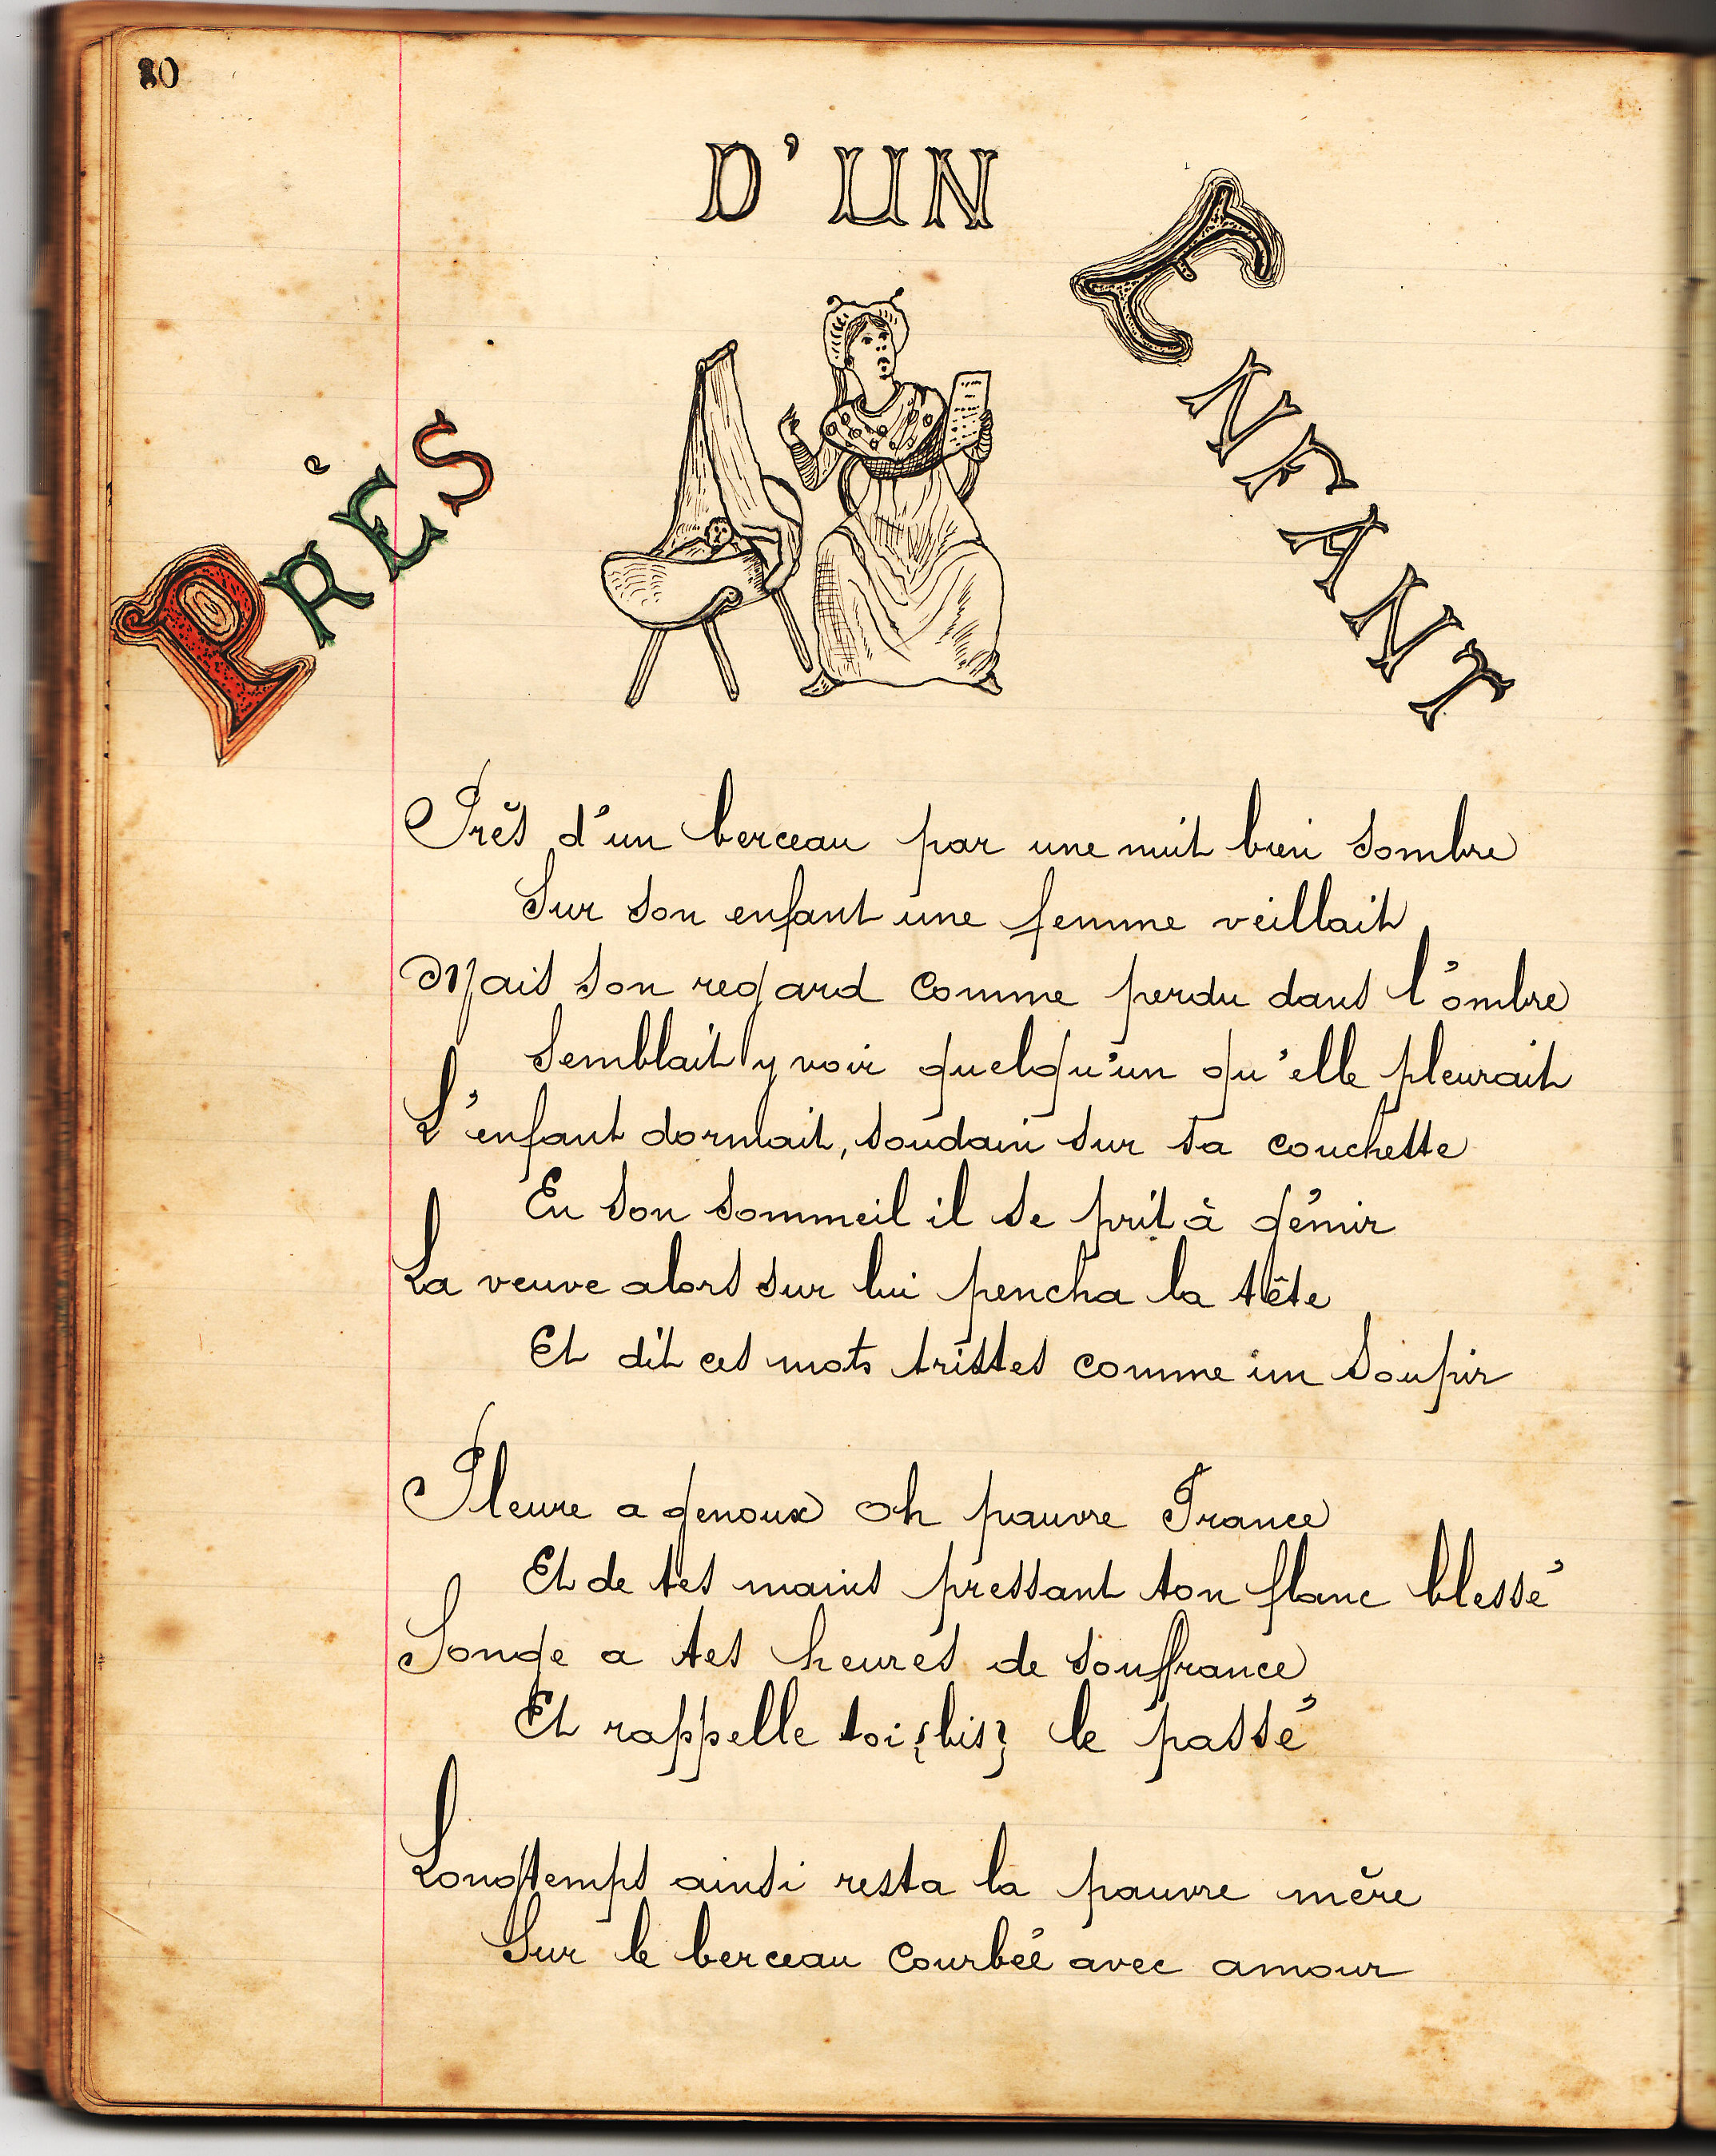 80
PRÈS D'UN ENFANT
Près d'un berceau par une nuit bien sombre
Sur son enfant une femme veillait
Mais son regard comme perdu dans l'ombre
Semblait y voir quelqu'un qu'elle pleurait
L'enfant dormait, soudain sur sa couchette
En son sommeil il se prit à gémir
La veuve alors sur lui pencha la tête
Et dit ces mots tristes comme un soupir
Pleure a genoux oh pauvre France
Et de tes mains pressant ton flanc blessé
Songe a tes heures de souffrance
Et rappelle toi {bis} le passé
Longtemps ainsi resta la pauvre mère
Sur le berceau courbée avec amour